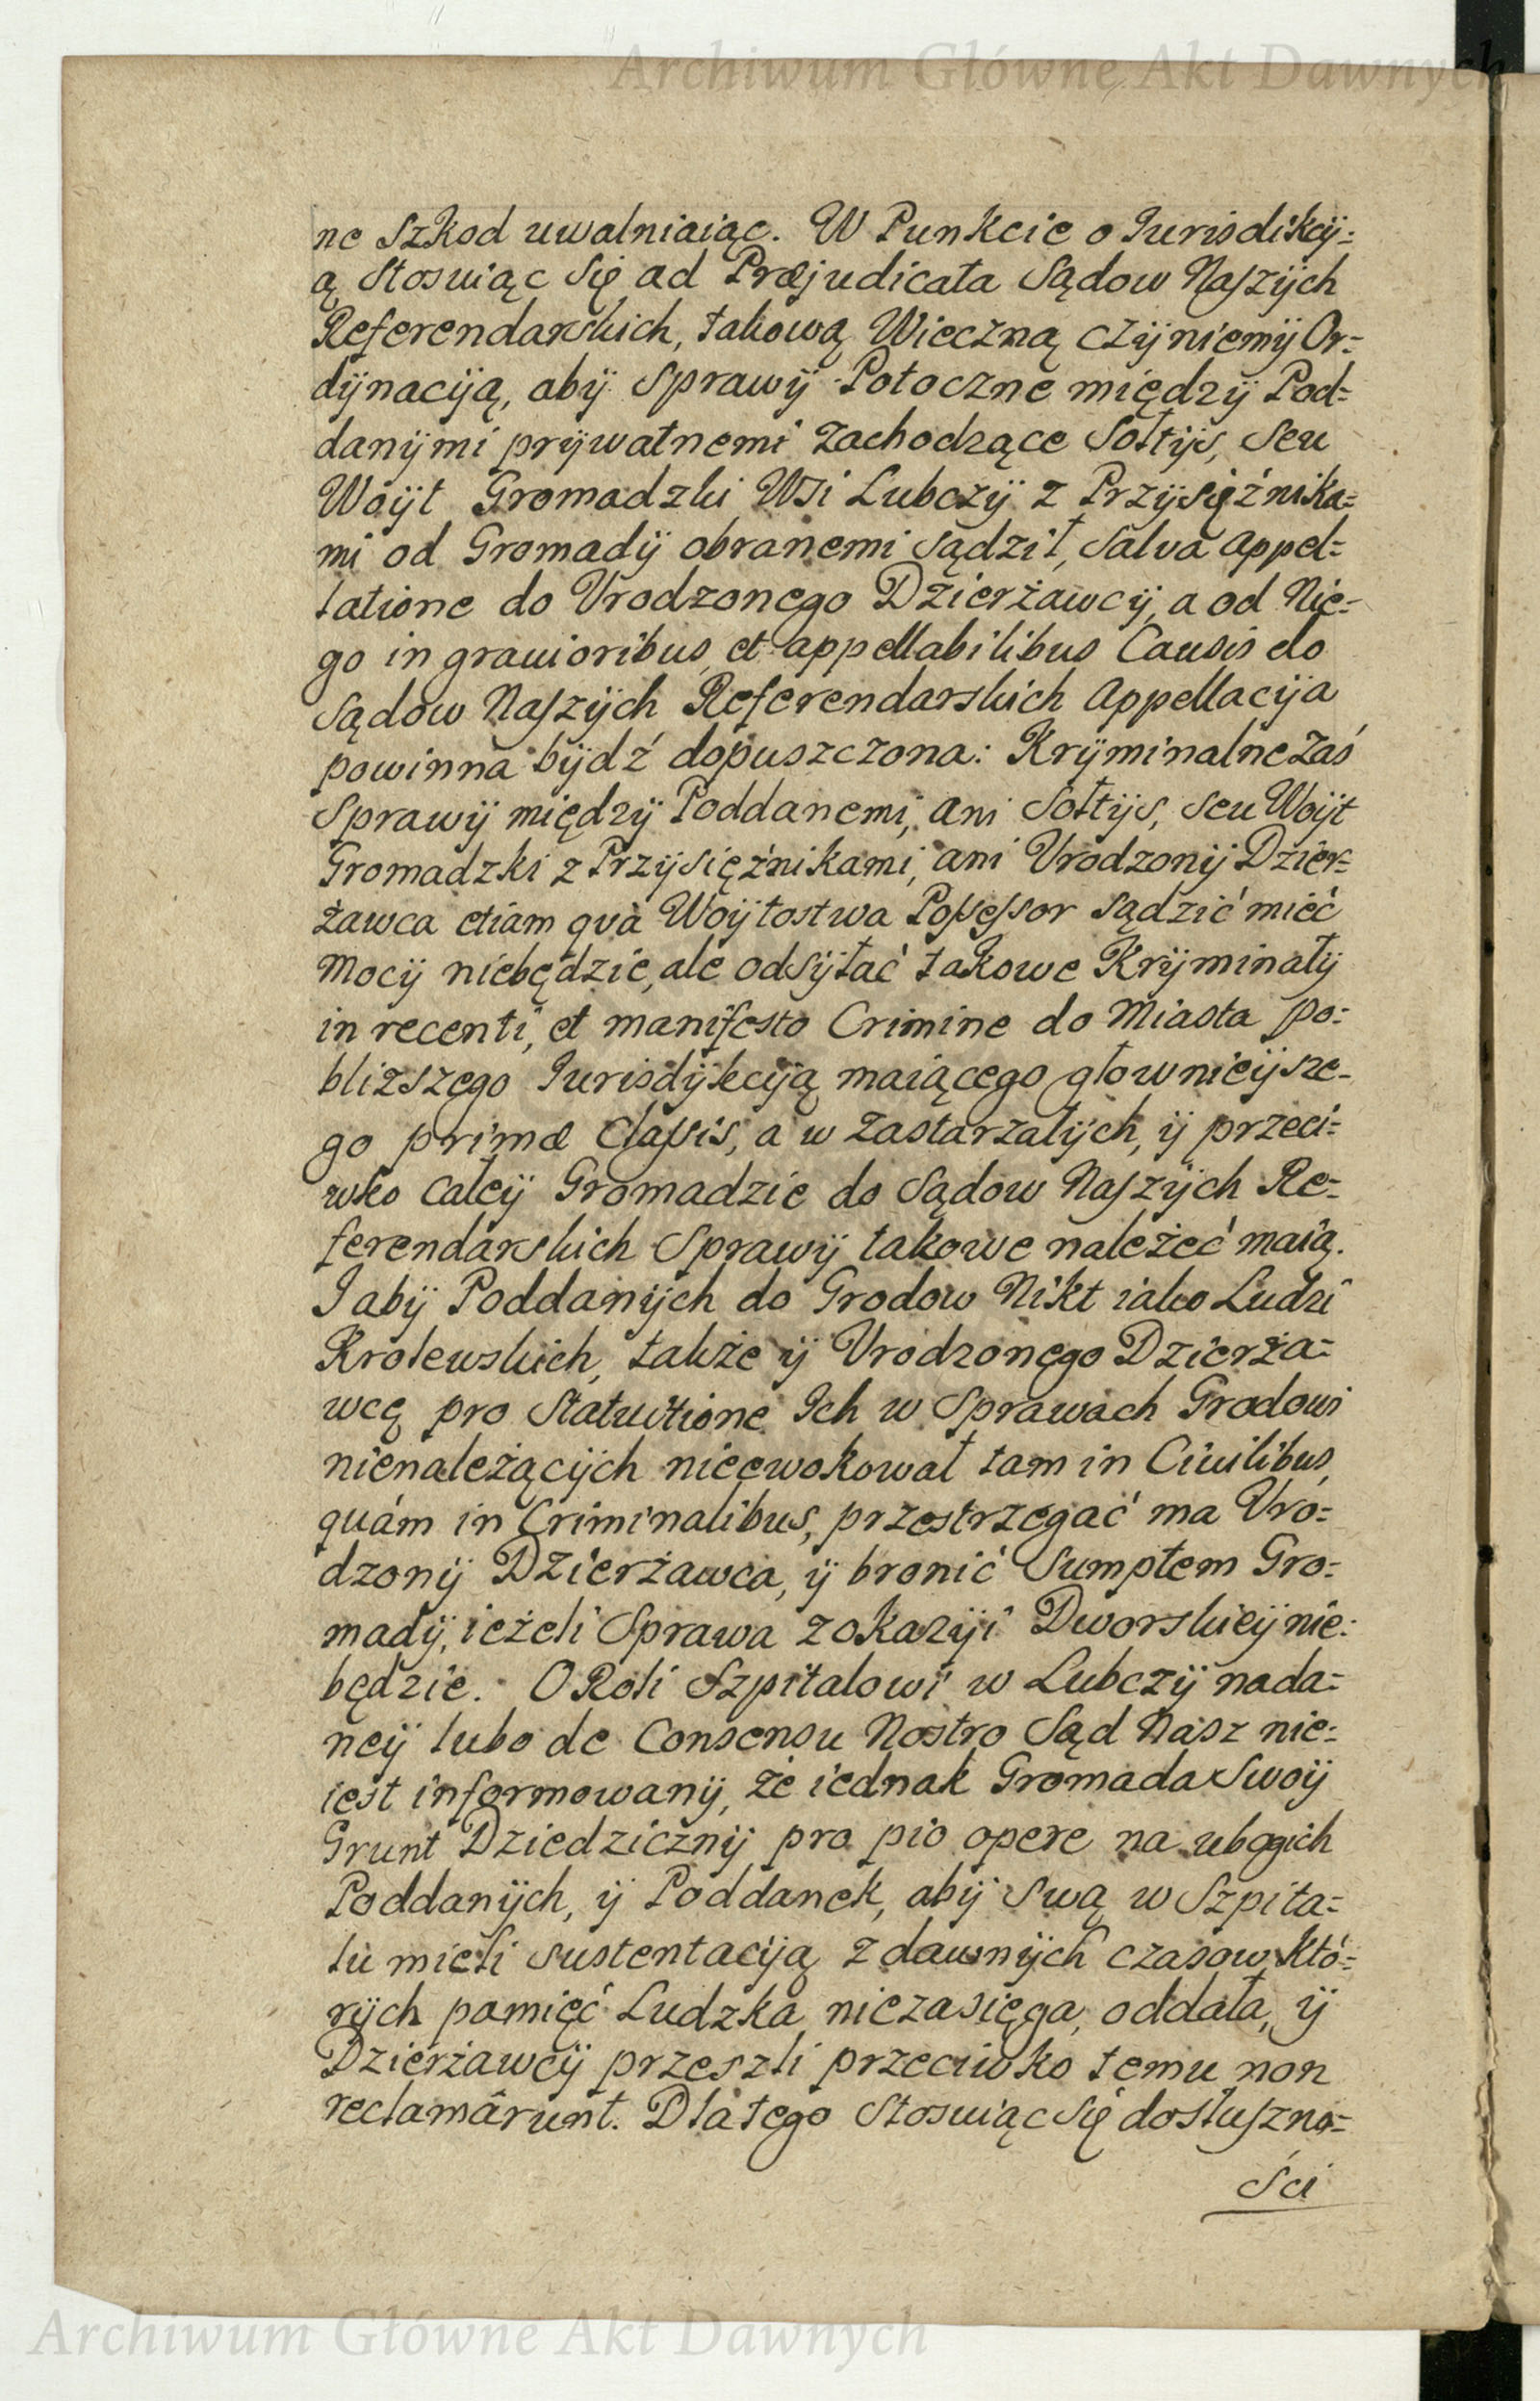 Archiwum Główne Akt Dawnych
ne Szkod uwalniaiąc. W Punkcie o Jurisdikcÿ=
ą Stosuiąc Się ad Præjudicata Sądow Naszÿch
Referendarskich, takową Wieczną czÿniemÿ Or=
dÿnacÿją, abÿ Sprawÿ Potoczne międzÿ Pod=
danÿmi prÿwatnemi zachodzące Sołtÿs, Seu
Woÿt Gromadzki WSi Lubczÿ z Przÿsiężnika=
mi od Gromadÿ obranemi Sądził, Salva Appel=
latione do Vrodzonego Dzierżawcÿ, a od Nie=
go in grauioribus, et appellabilibus Causis do
Sądow Naszÿch Referendarskich Appellacÿa
powinna bÿdź dopuszczona: Krÿminalne Zaś
Sprawÿ międzÿ Poddanemi, ani Sołtÿs, Seu Woÿt
Gromadzki z Przÿsiężnikami, ani Vrodzonÿ Dzier=
żawca etiam quà Woÿtostwa Possessor Sądzić mieć
Mocÿ niebędzie, ale odsÿłać takowe Krÿminałÿ
in recenti, et manifesto Crimine do Miasta po=
bliższego Jurisdÿkcÿą maiącego głownieÿsze=
go primæ Classis, a w Zastarzałÿch, ÿ przeci=
wko całeÿ Gromadzie do Sądow Naszÿch Re=
ferendarskich Sprawÿ takowe należeć maią.
I abÿ Poddanÿch do Grodow Nikt iako Ludzi
Krolewskich, także ÿ Vrodzonego Dzierża=
wcę pro Statuitione Ich w Sprawach Grodowi
nienależącÿch nieewokował tam in Ciuilibus,
quám in Criminalibus, przestrzegać ma Vro=
dzonÿ Dzierżawca, ÿ bronić Sumptem Gro=
madÿ, ieżeli Sprawa z okazÿi Dworskieÿ nie=
będzie. O Roli Szpitalowi w Lubczÿ nada=
neÿ lubo de Consensu Nostro Sąd Nasz nie=
iest informowanÿ, że iednak Gromada Swoÿ
Grunt Dziedzicznÿ pro pio opere na ubogich
Poddanÿch, ÿ Poddanek, abÿ Swą w Szpita=
lu mieli sustentacÿą z dawnÿch czasow, Któ=
rÿch pamięć Ludzka niezasięga, oddała, ÿ
Dzierżawcÿ przeszli przeciwko temu non
reclamârunt. Dlatego Stosuiąc Się do słuszno=
ści
Archiwum Główne Akt Dawnych